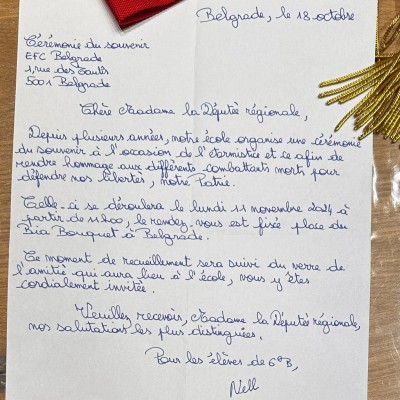 Belgrade, le 18 octobre
Cérémonie du souvenir
EFC Belgrade
1, rue des Tautis
5001 Belgrade
Chère Madame la Députée régionale,
Depuis plusieurs années, notre école organise une cérémonie
du souvenir à l'occasion de l'Armistice et ce afin de
rendre hommage aux différents combattants morts pour
défendre nos libertés, notre Patrie.
Celle-ci se déroulera le lundi 11 novembre 2024 à
partir de 11h00, le rendez-vous est fixé place du
Bia Bouquet à Belgrade.
Ce moment de recueillement sera suivi du verre de
l'amitié qui aura lieu à l'école, vous y êtes
cordialement invitée.
Veuillez recevoir, Madame la Députée régionale,
nos salutations les plus distinguées.
Pour les élèves de 6°B,
Nell